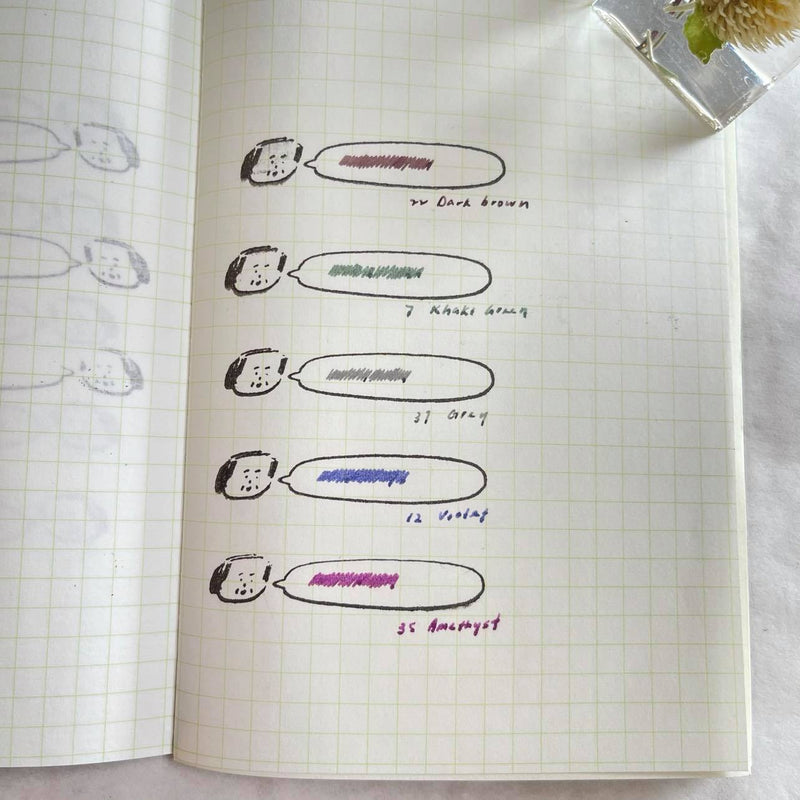 22 Dark brown
7 Khaki Green
37 Grey
12 Violet
35 Amethyst